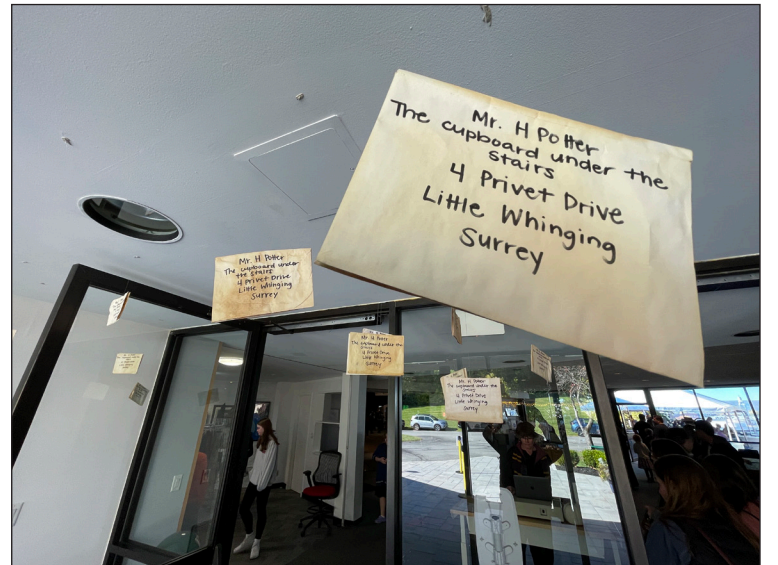 Mr. H Potter
The cupboard under the
stairs
4 Privet Drive
Little Whinging
Surrey
Mr. H Potter
The cupboard under
the stairs
4 Privet Drive
Little Whinging
Surrey
Mr H Potter
The cupboard under the
stairs
4 Privet Drive
Little Whinging
Surrey
Mr. H Potter
The cupboard under the
stairs
4 Privet Drive
Little Whinging
Surrey